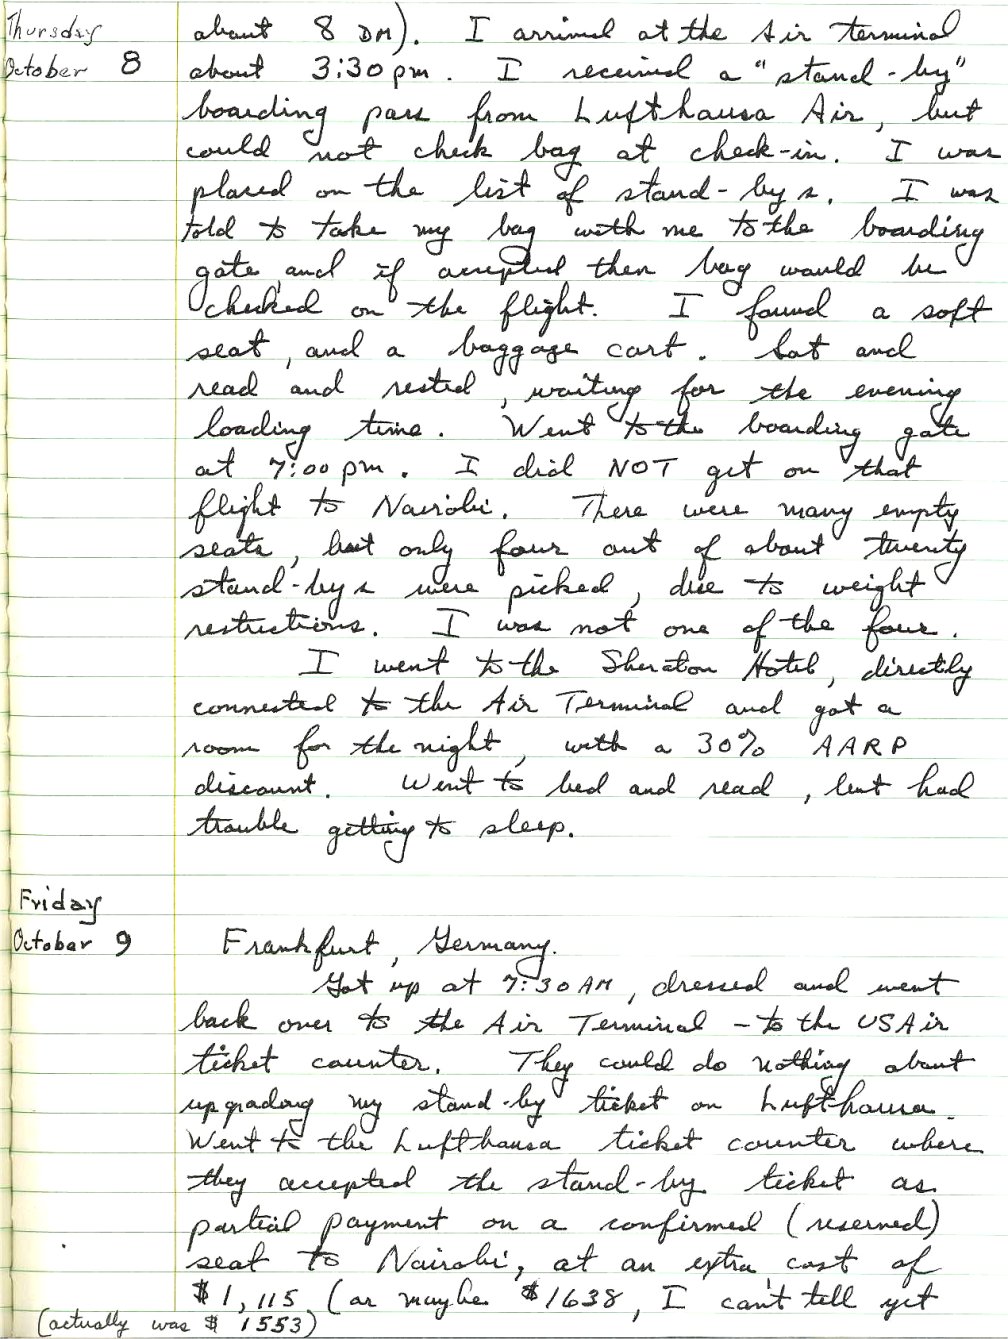 Thursday
October 8
about 8 DM). I arrived at the Air terminal
about 3:30 pm. I received a "stand-by"
boarding pass from Lufthausa Air, but
could not check bag at check-in. I was
placed on the list of stand-bys. I was
told to take my bag with me to the boarding
gate, and if accepted then bag would be
checked on the flight. I found a soft
seat, and a baggage cart. Sat and
read and rested, waiting for the evening
loading time. Went to the boarding gate
at 7:00 pm. I did NOT get on that
flight to Nairobi. There were many empty
seats, but only four out of about twenty
stand-bys were picked, due to weight
restrictions. I was not one of the four.
I went to the Sheraton Hotel, directly
connected to the Air Terminal and got a
room for the night, with a 30% AARP
discount. Went to bed and read, but had
trouble getting to sleep.
Friday
October 9
Frankfurt, Germany.
Got up at 7:30 AM, dressed and went
back over to the Air Terminal - to the USAir
ticket counter. They could do nothing about
upgrading my stand-by ticket on Lufthausa.
Went to the Lufthausa ticket counter where
they accepted the stand-by ticket as
partial payment on a confirmed (reserved)
seat to Nairobi, at an extra cost of
$1,115 (or maybe $1638, I can't tell yet
(actually was $ 1553)